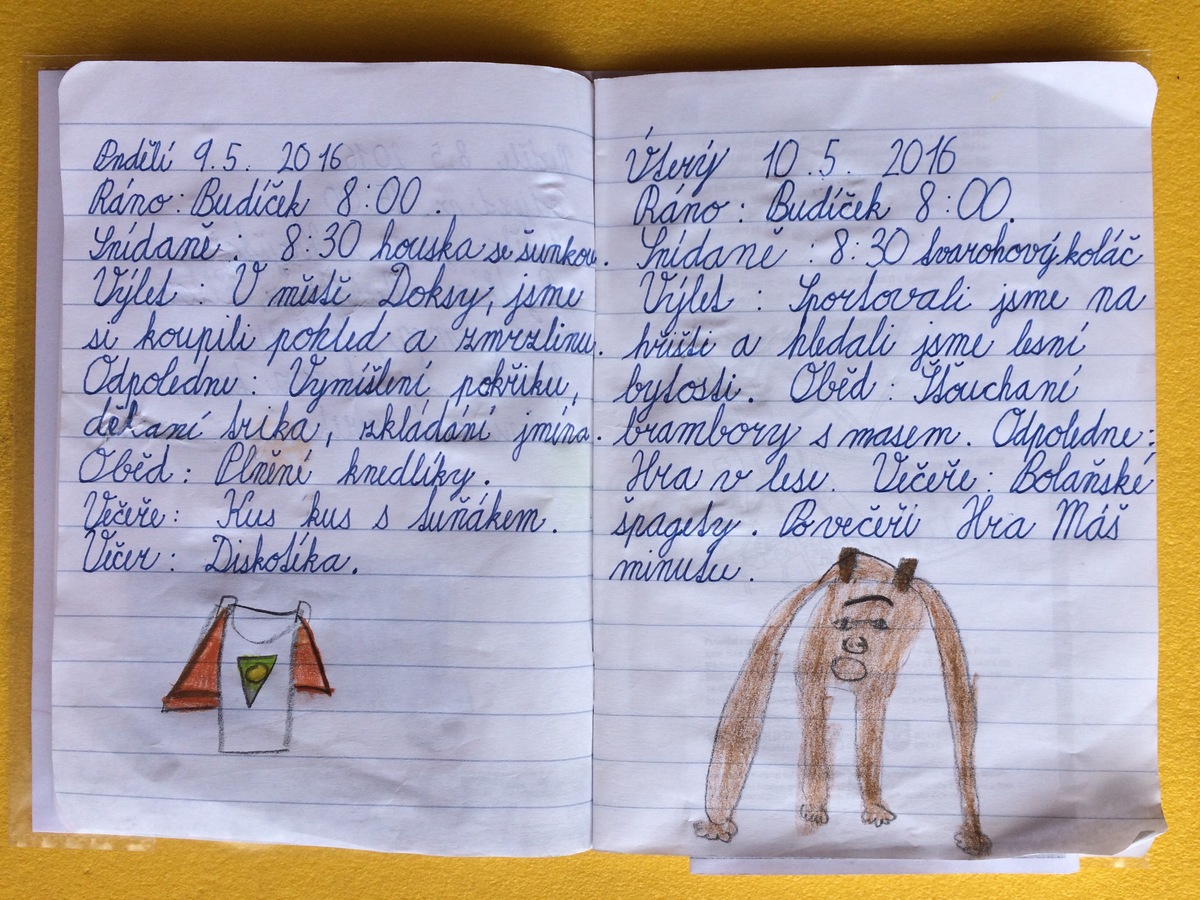 Pndělí 9.5. 2016
Ráno: Budíček 8:00.
Snídaně: 8:30 houska se šunkou.
Výlet: V místě Doksy, jsme
si koupili pohled a zmrzlinu.
Odpoledne: Vymíšlení pokřiku,
dělaní trika, zkládání jmína.
Oběd: Plnění knedlíky.
Večeře: Kus kus s tuňákem.
Večer: Diskotíka.
Úterý 10.5. 2016
Ráno: Budíček 8:00.
Snídaně: 8:30 tvarohový koláč
Výlet: Sportovali jsme na
hřišti a hledali jsme lesní
bytosti. Oběd: Štouchané
brambory s masem. Odpoledne:
Hra v lese. Večeře: Bolaňské
špagety. Povečeři Hra Máš
minutu.